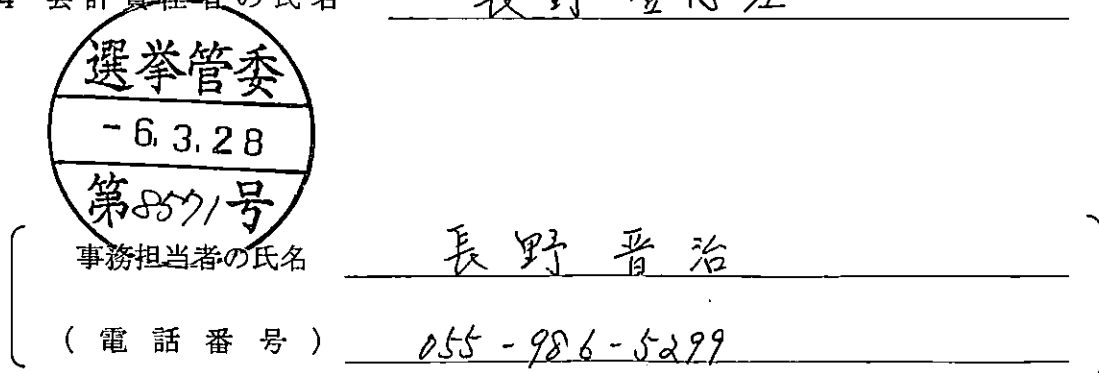 4 会計責任者の氏名 長野
選挙管委
-6.3.28
第8571号
事務担当者の氏名 長野 晋治
(電話番号) 055-986-5299